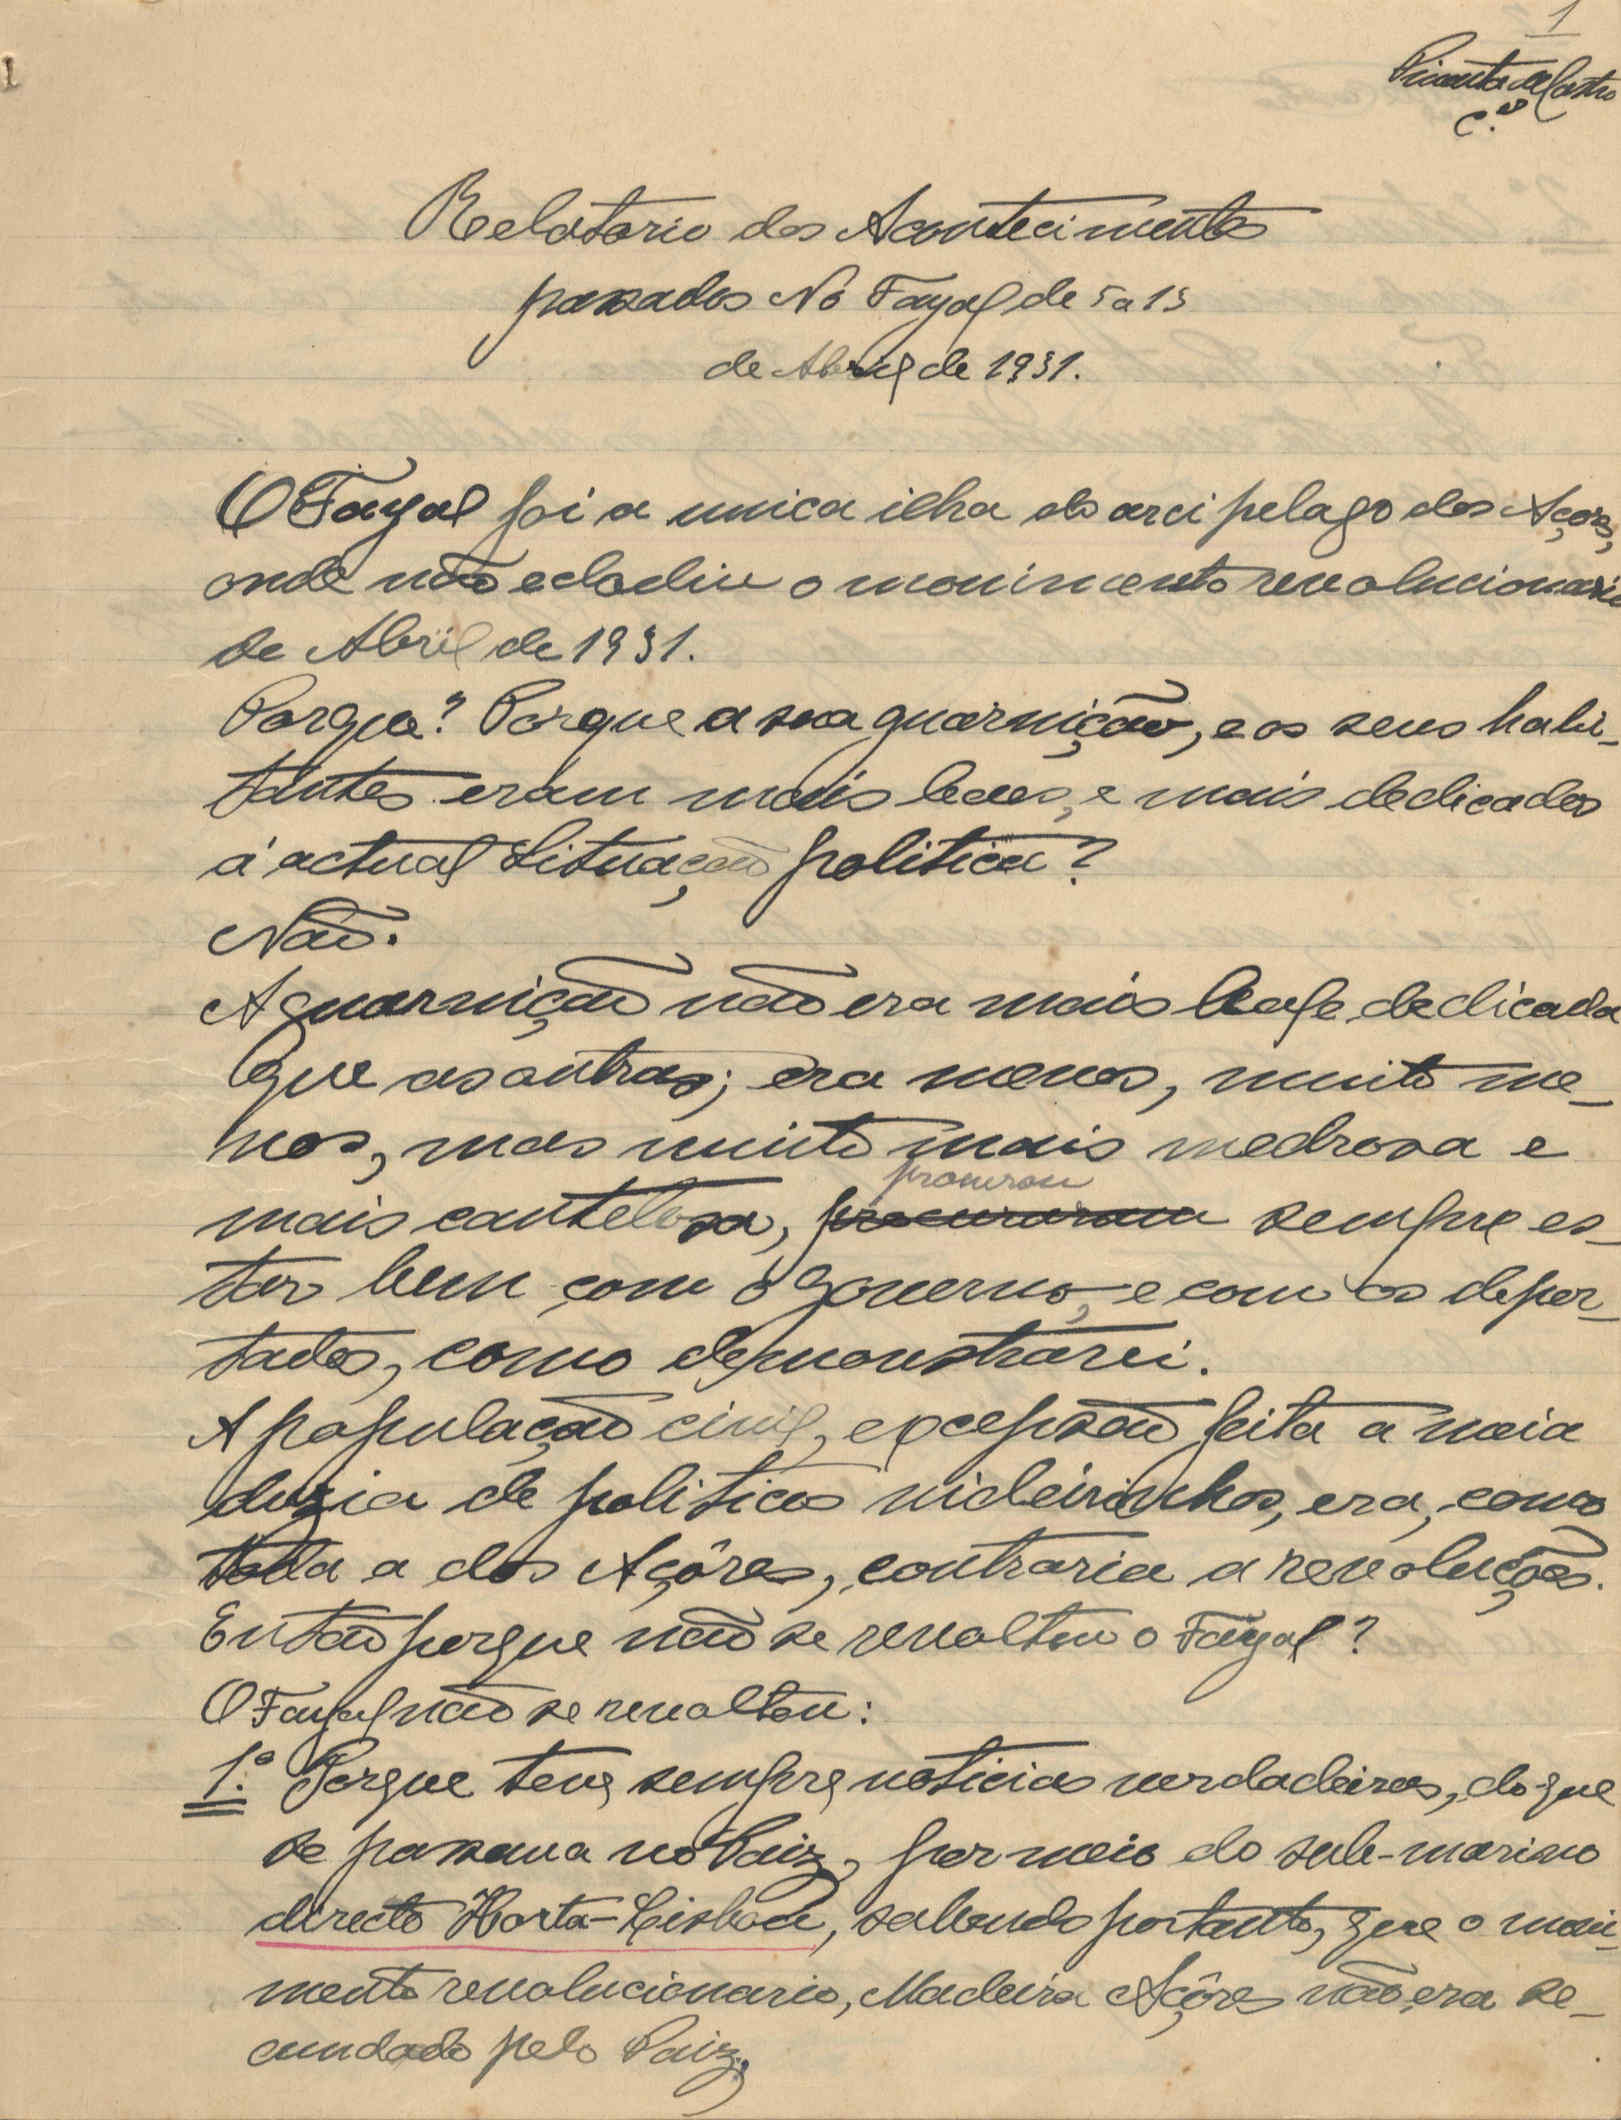 1
Pimenta de Castro
Relatorio dos Acontecimentos
passados No Fayal de 5 a 15
de Abril de 1931.
O Fayal foi a unica ilha do arcipelago dos Açores,
onde não eclodiu o movimento revolucionario
de Abril de 1931.
Porque? Porque a sua guarnição, e os seus habi-
tantes eram mais leaes, e mais dedicados
á actual Situação politica?
Não.
A guarnição não era mais leal e dedicada
que as outras; era menos, muito me-
nos, mas muito mais medrosa e
procurou
mais cautelosa, procuraram sempre es-
tar bem com o governo, e com os depor-
tados, como demonstrarei.
A população civil, excepsão feita a meia
duzia de politicos videirinhos, era, como
toda a dos Açôres, contraria a revoluções.
Então porque não se revoltou o Fayal?
O Fayal não se revoltou:
1.º Porque teve sempre noticias verdadeiras, do que
se passava no Paiz, por meio do sub-marino
directo Horta-Lisboa, sabendo portanto, que o movi-
mento revolucionario, Madeira Açôres não era se-
cundado pelo Paiz;